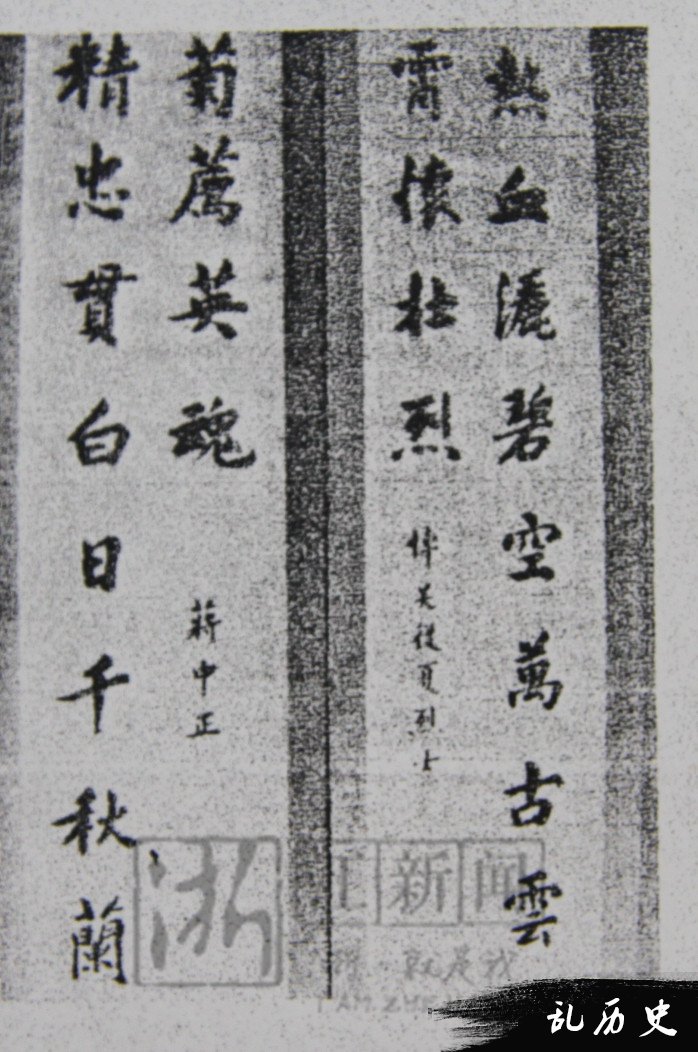 熱血灑碧空萬古雲
霄懷壯烈
悼吳復夏烈士
精忠貫白日千秋蘭
菊薦英魂
蔣中正
浙江新闻
就是我
乱历史